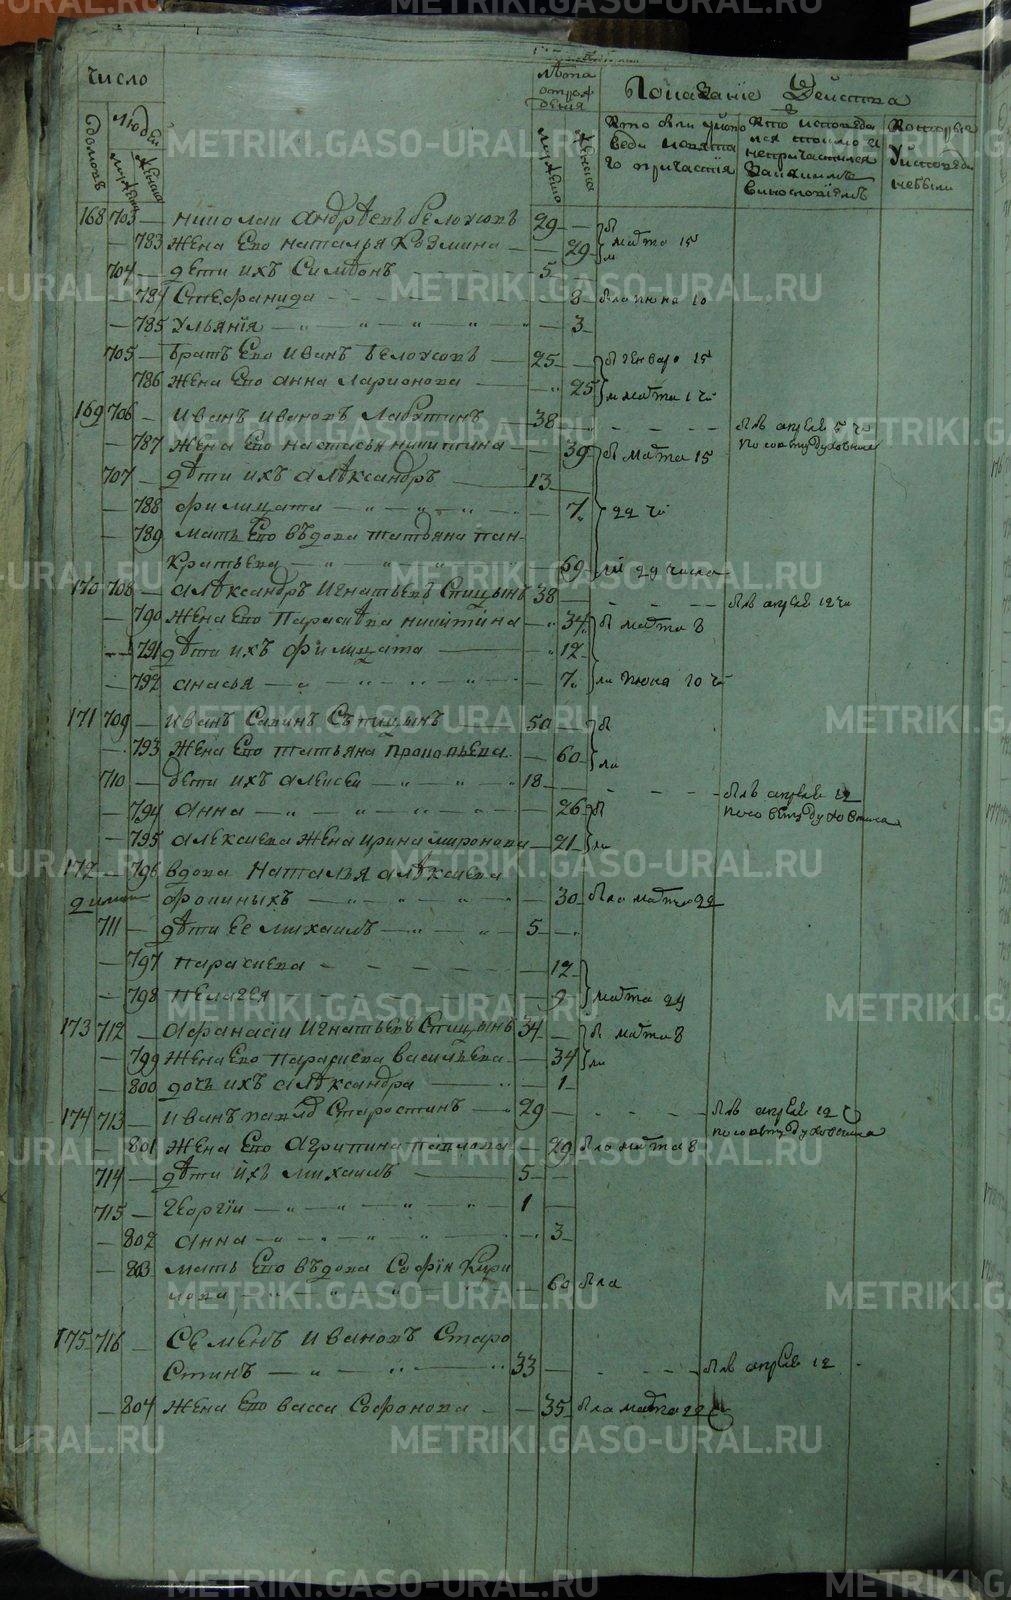 число
людей
домовъ
мужеска
женска
лѣта
отрож
денія
мужеска
женска
Показаніе Дѣйства
Кто были уиспо
веди исвята
го причастія
Кто исповеда
лся токмо и
непричастился
Закакимъ
винословіемъ
Которыя
Уисповеди
небыли
168 703 — николаи Андрѣевъ Белоусовъ 29 — б
— 783 жена Ево наталья Козмина — 29 марта 15
704 — дети ихъ Симеонъ 5 —
784 Стефанида — 8 была июня 10
— 785 Ульянія — 3
705 — братъ Ево Иванъ Белоусовъ — 25 — б генваря 15
786 жена Ево анна Ларионова — 25 и марта 1
169 706 — Иванъ Ивановъ Лабутинъ 38 — былъ апреля 5
по совѣту духовника
— 787 жена Ево настасья никитина — 39 б марта 15
707 — дѣти ихъ алѣксандръ — 13
788 филицата — 7 22 ч
— 789 мать Ево въдова татьяна пан-
кратьева — 69 29 числа
170 708 — алѣксандръ Игнатьевъ Спицынъ 38 — былъ апреля 12
— 790 жена Ево Параскѣва никитина — 34 б марта 8
— 791 дѣти ихъ филицата — 12
— 792 анасья — 7 июня 10 ч
171 709 — Иванъ Савинъ Съпицынъ — 50 — б
— 793 жена Ево татьяна Прокопьева — 60 ла
710 — дети ихъ алексеи — 18 — былъ апреля 12
по совету духовника
— 794 анна — 26 б
— 795 алексиева жена ирина миронова — 21 ла
172 — 796 вдова Наталья алѣксиева
фокиныхъ — 30 была марта 22
711 — дѣти Ее михаилъ — 5 —
— 797 параскева — 12
— 798 пелагея — 9 марта 29
173 712 — Афанасіи Игнатьевъ Спицынъ 34 — б марта 8
— 799 жена Ево параскева васильева — 34 ла
— 800 дочь ихъ алѣксандра — 1
174 713 — иванъ павлов Старостинъ — 29 — былъ апреля 12
по совету духовника
— 801 жена Ево агрипина павлова — 29 была марта 8
714 — дѣти ихъ михаилъ — 5 —
715 — георгіи — 1 —
— 802 анна — 3
— 803 мать Ево въдова Софія Кири
лова — 60 была
175 716 — Семенъ Ивановъ Старо
стинъ — 33 — былъ апреля 12
— 804 жена Ево васса Софонова — 35 была марта 22
METRIKI.GASO-URAL.RU